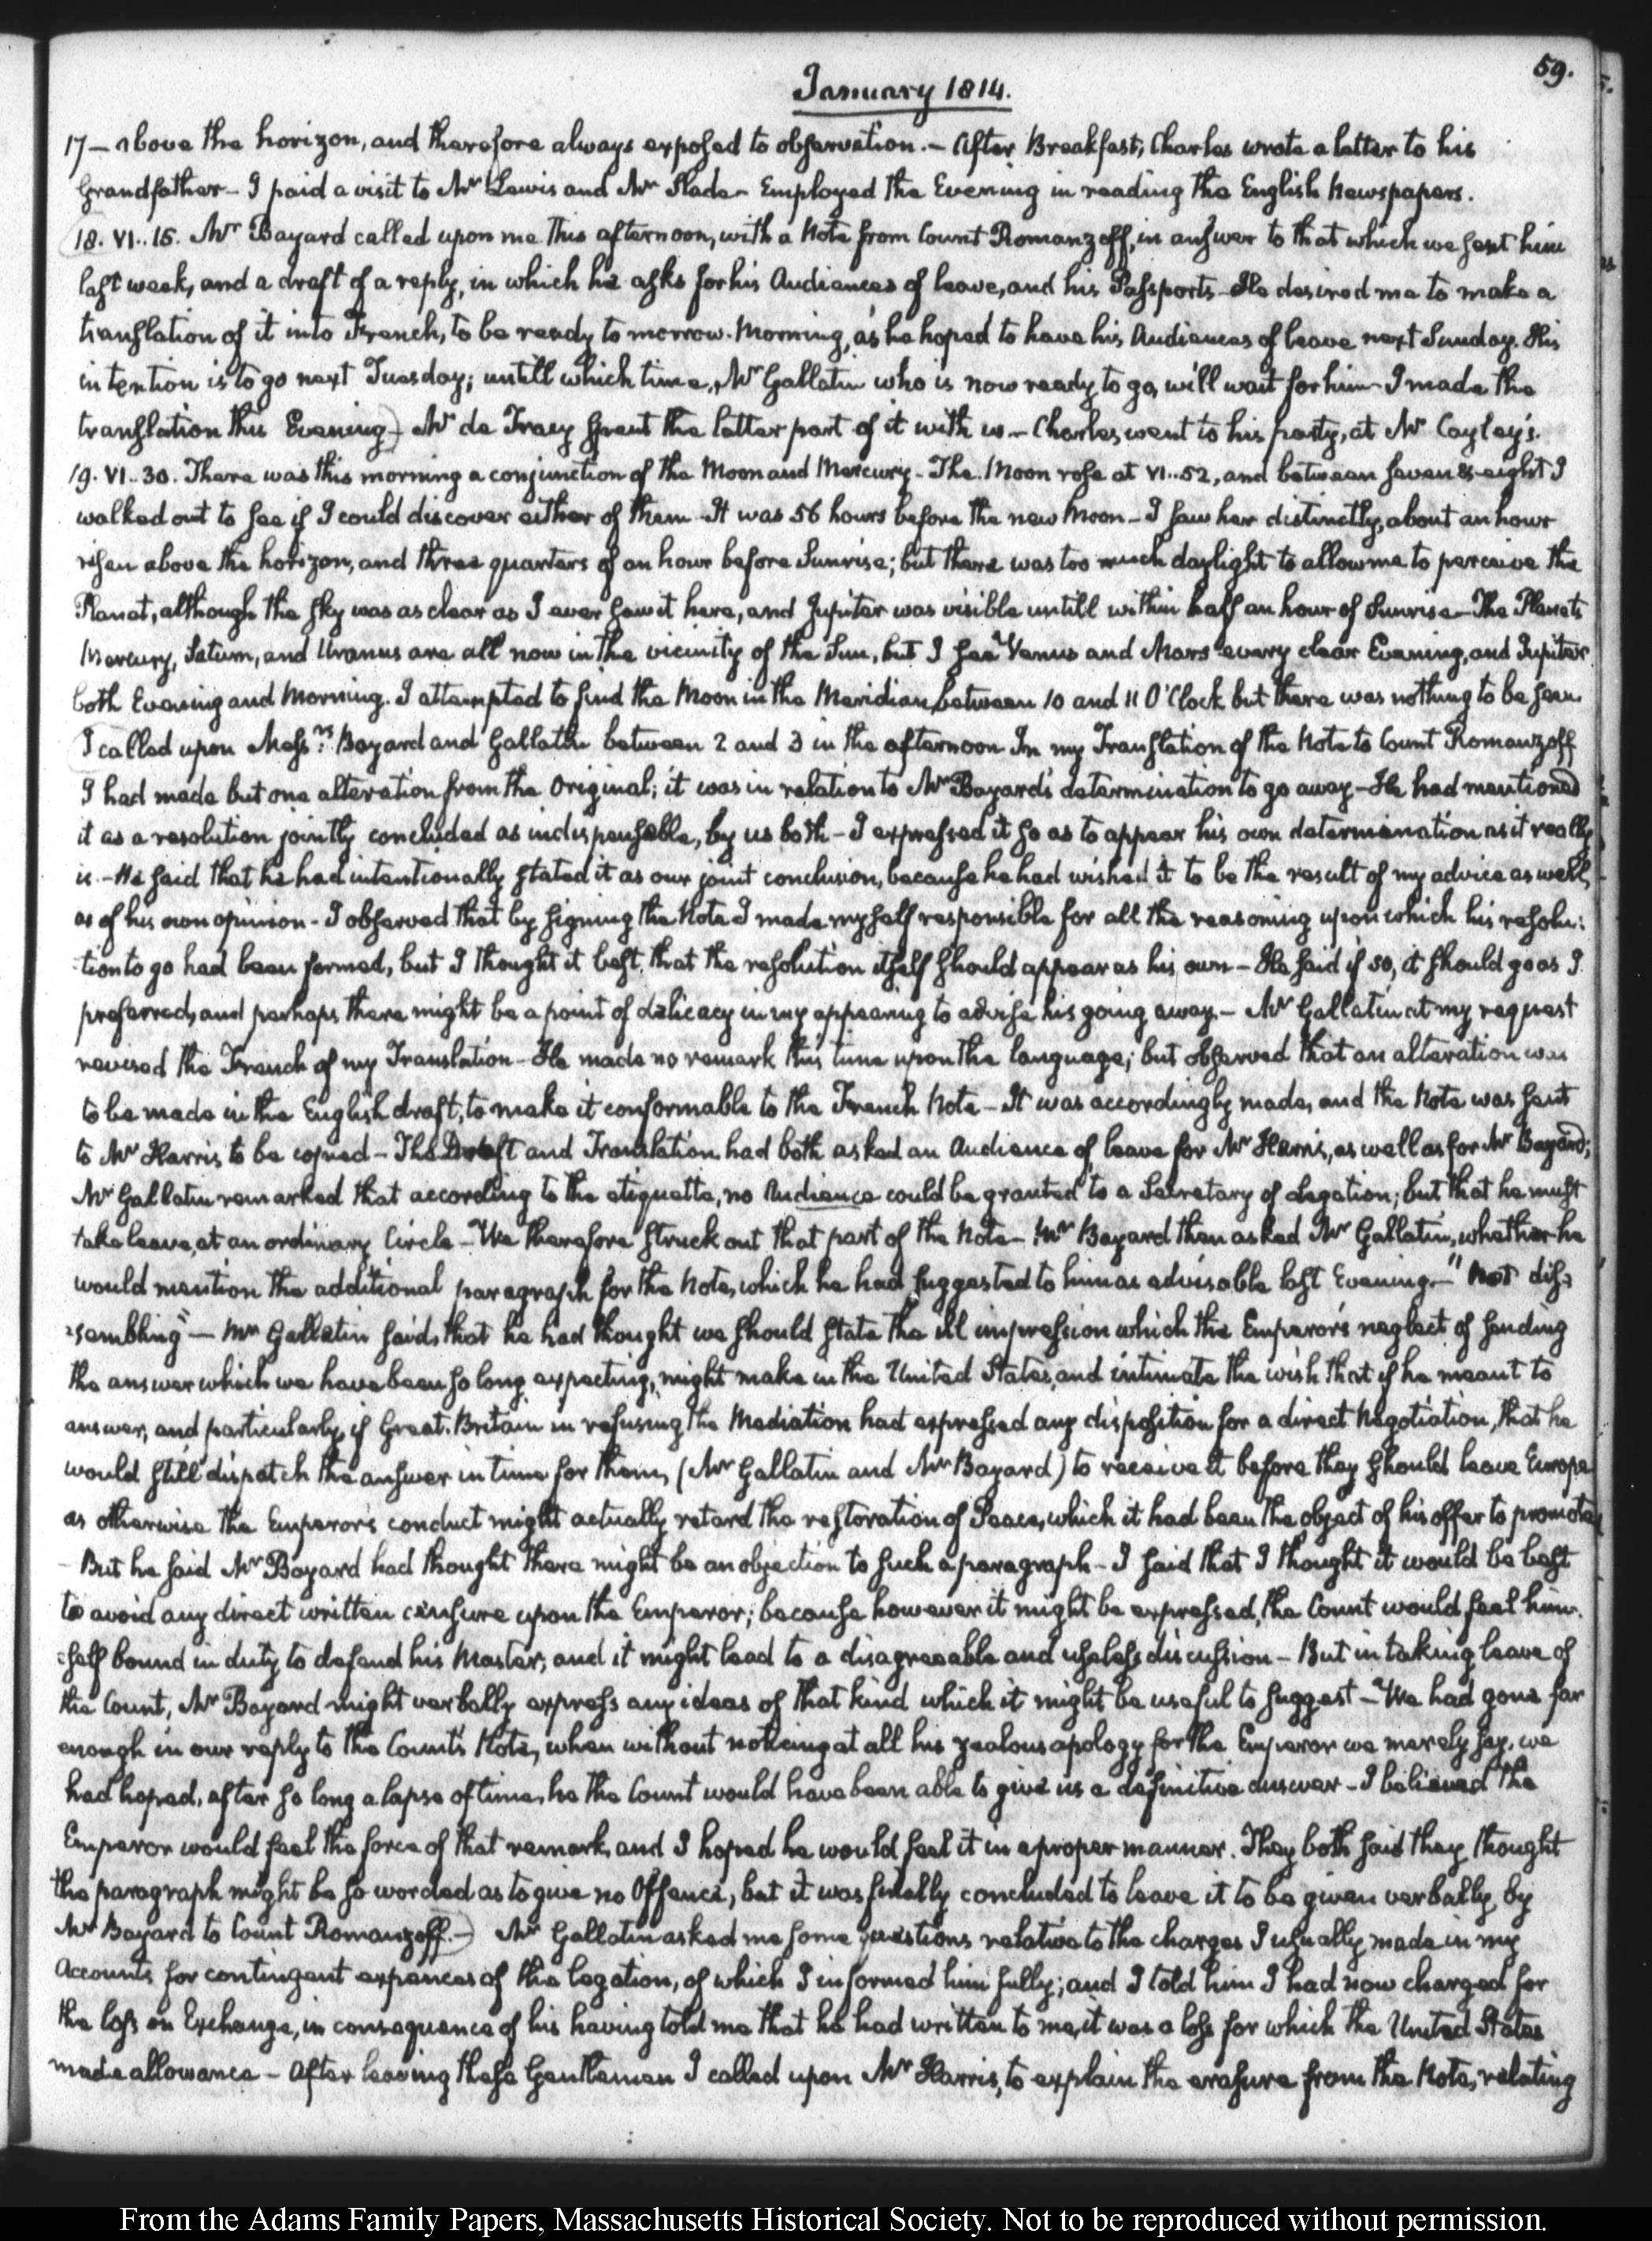 59.
January 1814.
17 — above the horizon, and therefore always exposed to observation. — After Breakfast, Charles wrote a letter to his
Grandfather — I paid a visit to Mr Lewis and Mr Slade — Employed the Evening in reading the English Newspapers.
18. VI..15. Mr Bayard called upon me this afternoon, with a Note from Count Romanzoff, in answer to that which we sent him
last week, and a draft of a reply, in which he asks for his Audiences of leave, and his Passports — He desired me to make a
translation of it into French, to be ready to morrow Morning, as he hoped to have his Audiences of leave next Sunday. His
intention is to go next Tuesday; untill which time, Mr Gallatin who is now ready to go, will wait for him — I made the
translation this Evening) Mr de Tracy spent the latter part of it with us — Charles went to his party, at Mr Cayley's.
19. VI..30. There was this morning a conjunction of the Moon and Mercury — The Moon rose at VI..52, and between seven & eight I
walked out to see if I could discover either of them — It was 56 hours before the new Moon — I saw her distinctly, about an hour
risen above the horizon, and three quarters of an hour before Sunrise; but there was too much daylight to allow me to perceive the
Planet, although the sky was as clear as I ever saw it here, and Jupiter was visible untill within half an hour of Sunrise — The Planets
Mercury, Saturn, and Uranus are all now in the vicinity of the Sun, but I see Venus and Mars every clear Evening, and Jupiter
both Evening and Morning. I attempted to find the Moon in the Meridian between 10 and 11 O'Clock but there was nothing to be seen.
(I called upon Messrs Bayard and Gallatin between 2 and 3 in the afternoon In my Translation of the Note to Count Romanzoff
I had made but one alteration from the Original; it was in relation to Mr Bayard's determination to go away — He had mentioned
it as a resolution jointly concluded as indispensable, by us both — I expressed it so as to appear his own determination as it really
is. — He said that he had intentionally stated it as our joint conclusion, because he had wished it to be the result of my advice as well,
as of his own opinion — I observed that by signing the Note I made myself responsible for all the reasoning upon which his resolu:
:tion to go had been formed, but I thought it best, that the resolution itself should appear as his own — He said if so, it should go as I
preferred, and perhaps there might be a point of delicacy in my appearing to advise his going away. — Mr Gallatin at my request
revised the French of my Translation — He made no remark this time upon the language; but observed that an alteration was
to be made in the English draft, to make it conformable to the French Note — It was accordingly made, and the Note was sent
to Mr Harris to be copied — The Draft and Translation had both asked an Audience of leave for Mr Harris, as well as for Mr Bayard;
Mr Gallatin remarked that according to the etiquette, no Audience could be granted to a Secretary of Legation; but that he must
take leave, at an ordinary Circle — We therefore struck out that part of the Note — Mr Bayard then asked Mr Gallatin, whether he
would mention the additional paragraph for the Note, which he had suggested to him as advisable last Evening — "Not dis:
:sembling" — Mr Gallatin said, that he had thought we should state the ill impression which the Emperor's neglect of sending
the answer which we have been so long expecting, might make in the United States, and intimate the wish that if he meant to
answer, and particularly if Great-Britain in refusing the Mediation had expressed any disposition for a direct Negotiation, that he
would still dispatch the answer in time for them, (Mr Gallatin and Mr Bayard) to receive it before they should leave Europe
as otherwise the Emperor's conduct might actually retard the restoration of Peace, which it had been the object of his offer to promote
— But he said Mr Bayard had thought there might be an objection to such a paragraph — I said that I thought it would be best
to avoid any direct written censure upon the Emperor; because however it might be expressed, the Count would feel him:
:self bound in duty to defend his Master, and it might lead to a disagreeable and useless discussion — But in taking leave of
the Count, Mr Bayard might verbally express any ideas of that kind which it might be useful to suggest — We had gone far
enough in our reply to the Count's Note, when without noticing at all his zealous apology for the Emperor we merely say, we
had hoped, after so long a lapse of time, he the Count would have been able to give us a definitive answer — I believed the
Emperor would feel the force of that remark, and I hoped he would feel it in a proper manner. They both said they thought
the paragraph might be so worded as to give no Offence, but it was finally concluded to leave it to be given verbally by
Mr Bayard to Count Romanzoff. —) Mr Gallatin asked me some questions relative to the charges I usually made in my
Accounts for contingent expences of the legation, of which I informed him fully; and I told him I had now charged for
the loss on Exchange, in consequence of his having told me that he had written to me, it was a loss for which the United States
made allowance — After leaving these Gentlemen I called upon Mr Harris, to explain the erasure from the Note, relating
From the Adams Family Papers, Massachusetts Historical Society. Not to be reproduced without permission.